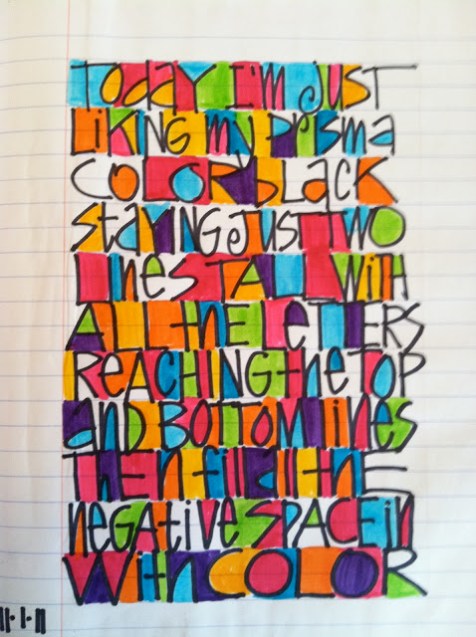 Today I'm just
LiKiNG my prisma
COLOR bLack
StaYING just two
Lines TALL with
ALL the Letters
ReACHING the top
and BOTTOM Lines
Then fill in the
neGative SPACE in
with COLOR
11·1·11